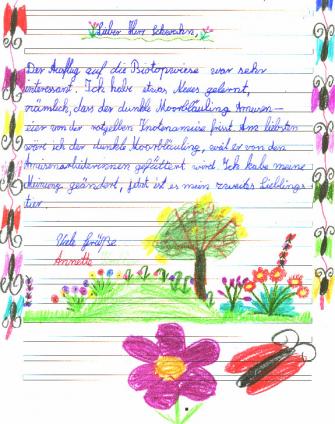 Lieber Herr Schwahn,
Der Ausflug auf die Biotopwiese war sehr
interessant. Ich habe etwas Neues gelernt,
nämlich, dass der dunkle Moorbläuling Ameisen-
eier von der rotgelben Knotenameise frisst. Am liebsten
wär ich der dunkle Moorbläuling, weil er von den
Ameisenarbeiterinnen gefüttert wird. Ich habe meine
Meinung geändert, jetzt ist es mein zweites Lieblings
tier.
Viele Grüße
Annette